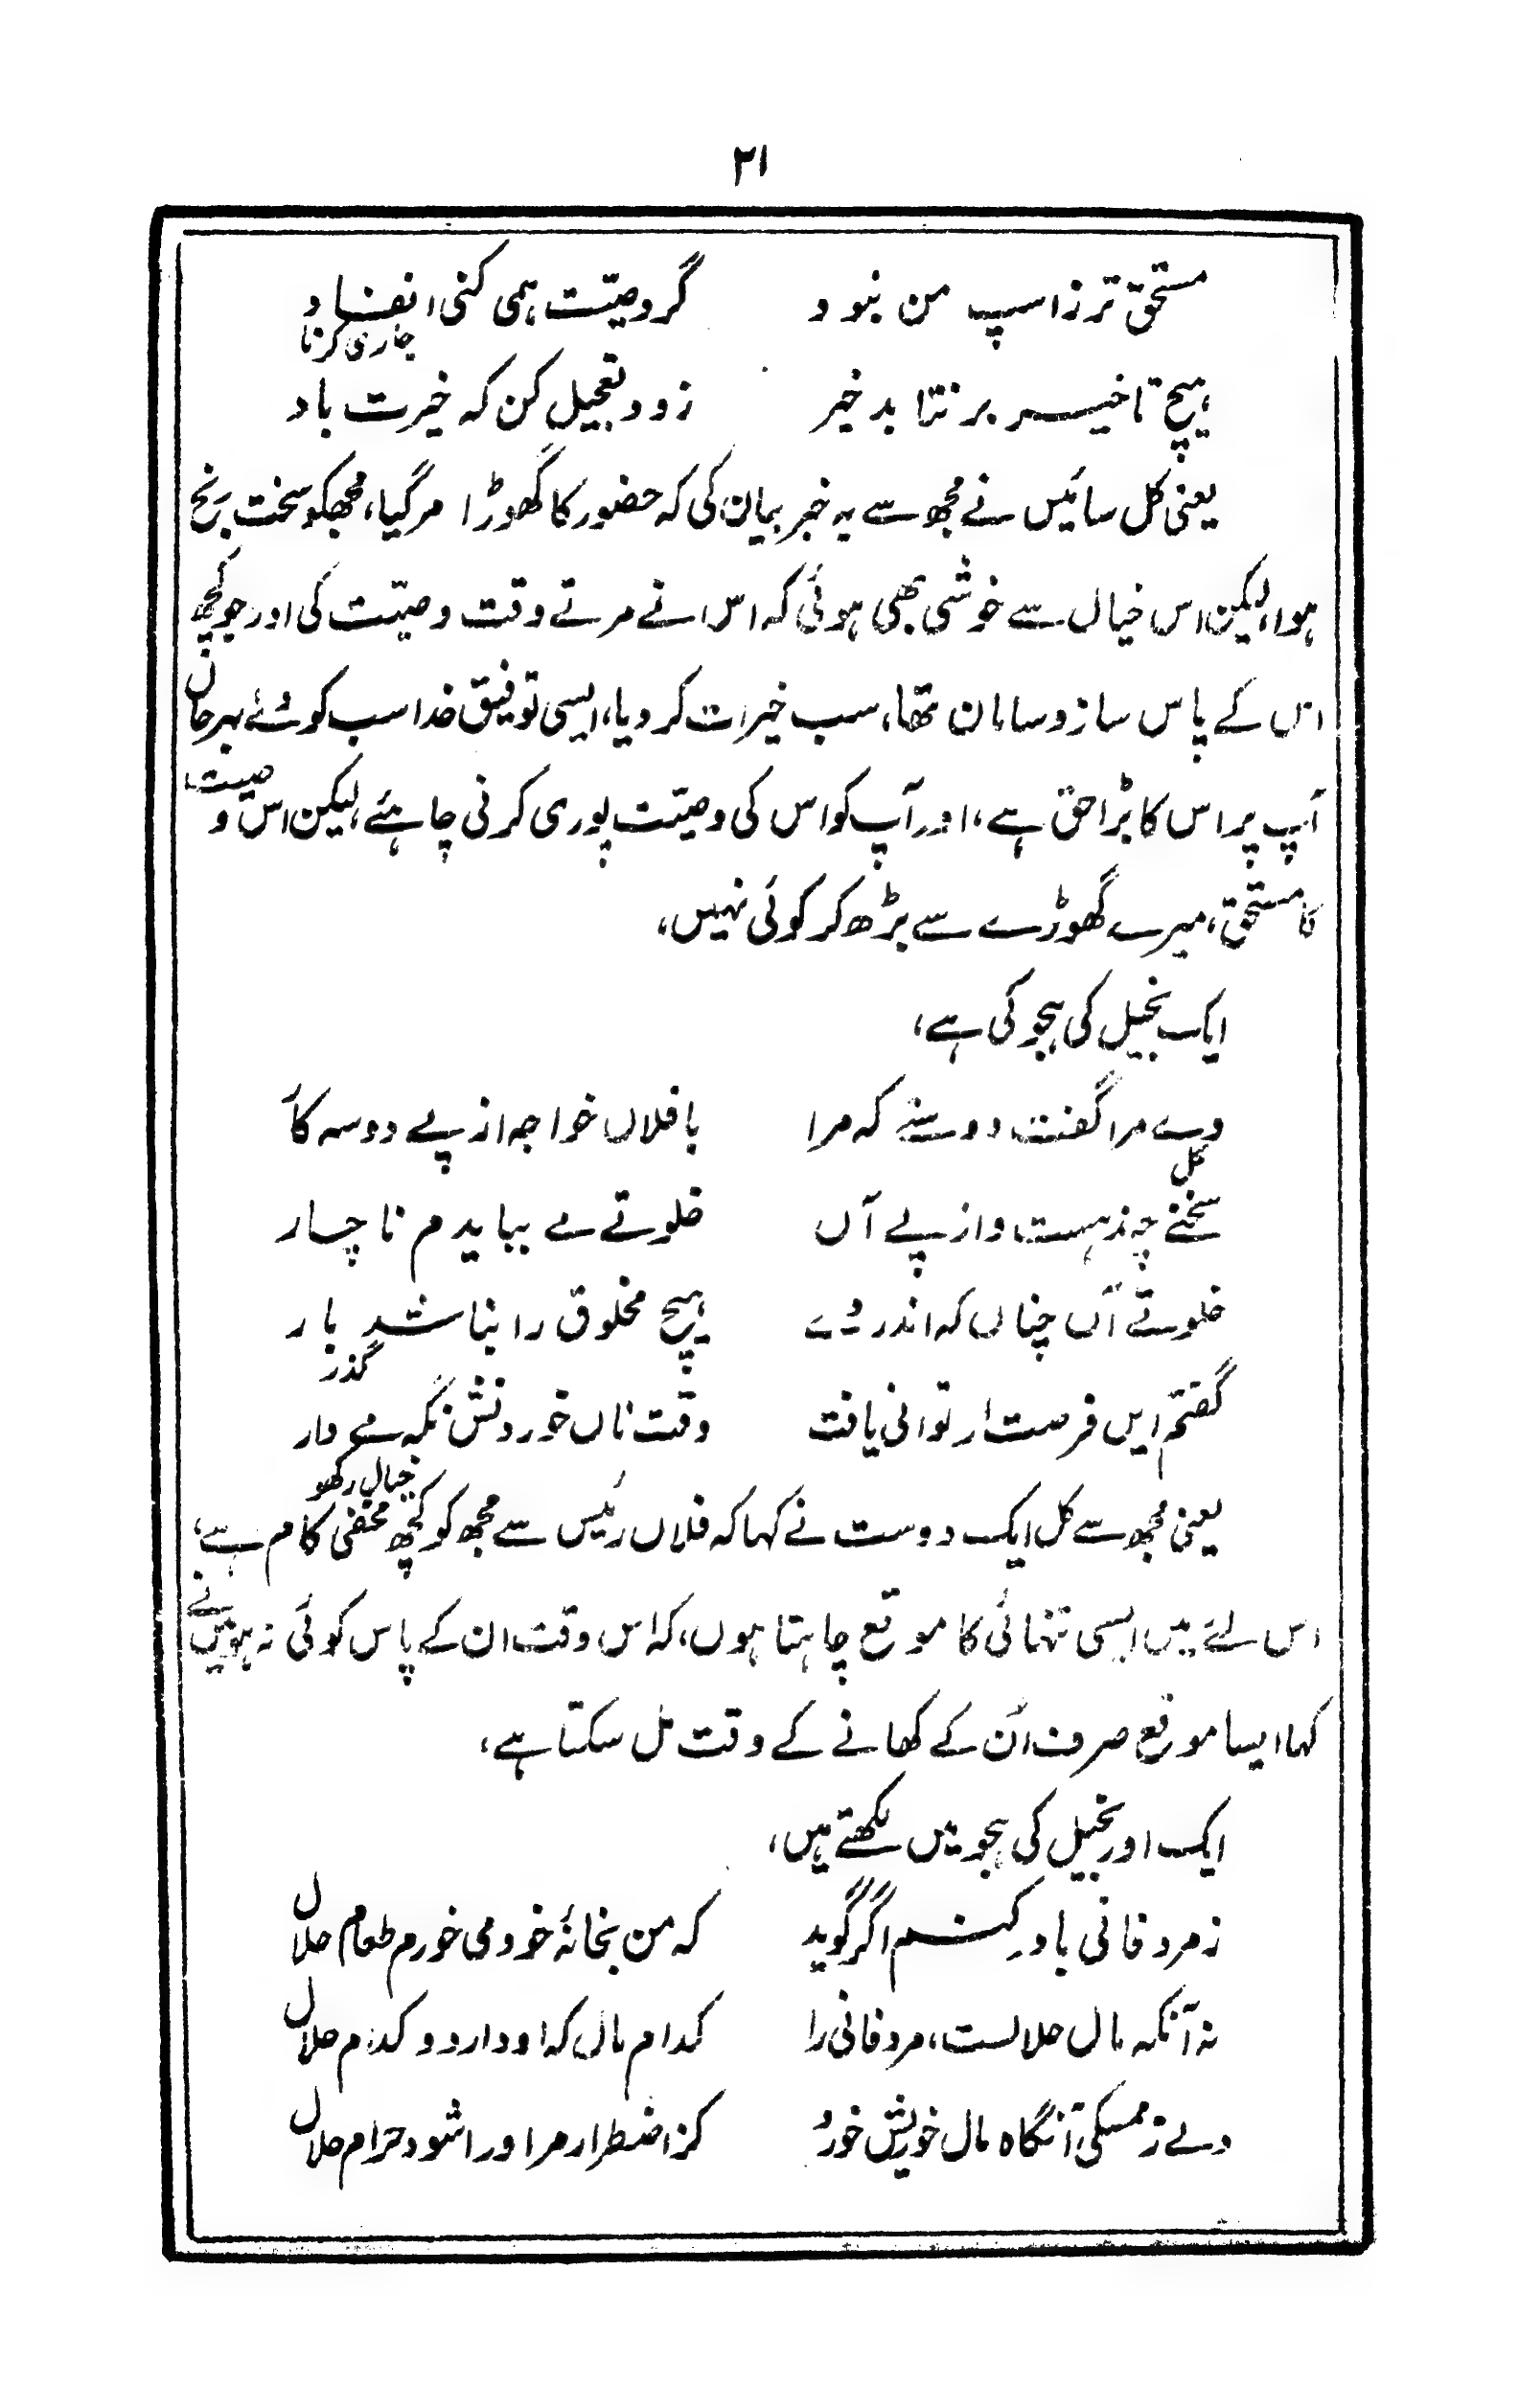 ۲۱
مستحق تر زاسپ من نبود گر وصیّت ہمی کنی انفاد
جاری کرنا
ہیچ تاخیر برنتابد خیر زود تعجیل کن کہ خیرت باد
یعنی کل سائیس نے مجھ سے یہ خبر بیان کی کہ حضور کا گھوڑا مر گیا، مجھکو سخت رنج
ہوا، لیکن اس خیال سے خوشی بھی ہوئی کہ اس نے مرتے وقت وصیّت کی اور جو کچھ
اس کے پاس ساز و سامان تھا، سب خیرات کر دیا، ایسی توفیق خدا سب کو دے بہرحال
آپ پر اس کا بڑا حق ہے، اور آپ کو اس کی وصیّت پوری کرنی چاہئے، لیکن اس وصیت
کا مستحق، میرے گھوڑے سے بڑھ کر کوئی نہیں،
ایک بخیل کی ہجو کی ہے،
دے مرا گفت دوستے کہ مرا با فلاں خواجہ از پے دوسہ کار
کل
سخنے چند ہست واز پے آں خلوتے مے ببایدم ناچار
خلوتے آں چناں کہ اندر وے ہیچ مخلوق را نباشد بار
گذر
گفتم ایں فرصت ار توانی یافت وقت ناں خوردنش نگہ مے دار
خیال رکھو
یعنی مجھ سے کل ایک دوست نے کہا کہ فلاں رئیس سے مجھ کو کچھ مخفی کام ہے،
اس لئے میں ایسی تنہائی کا موقع چاہتا ہوں، کہ اس وقت ان کے پاس کوئی نہ ہو، میں نے
کہا ایسا موقع صرف اُن کے کھانے کے وقت مل سکتا ہے،
ایک اور بخیل کی ہجو میں لکھتے ہیں،
ز مرد فانی باور کنم اگر گوید کہ من بخانۂ خود می خورم طعام حلال
نہ آنکہ مال حلالست، مرد فانی را کدام مال کہ او دارد و کدام حلال
ولے ز ممسکی آنگاہ مال خویش خورد کز اضطرار مر او را شود حرام حلال